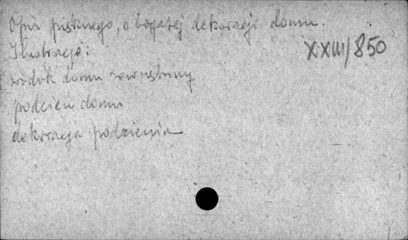 Opis pięknego, o bogatej dekoracji domu.
Ilustracje:
XXIII/850
widok domu zewnętrzny
podcień domu
dekoracja podcienia